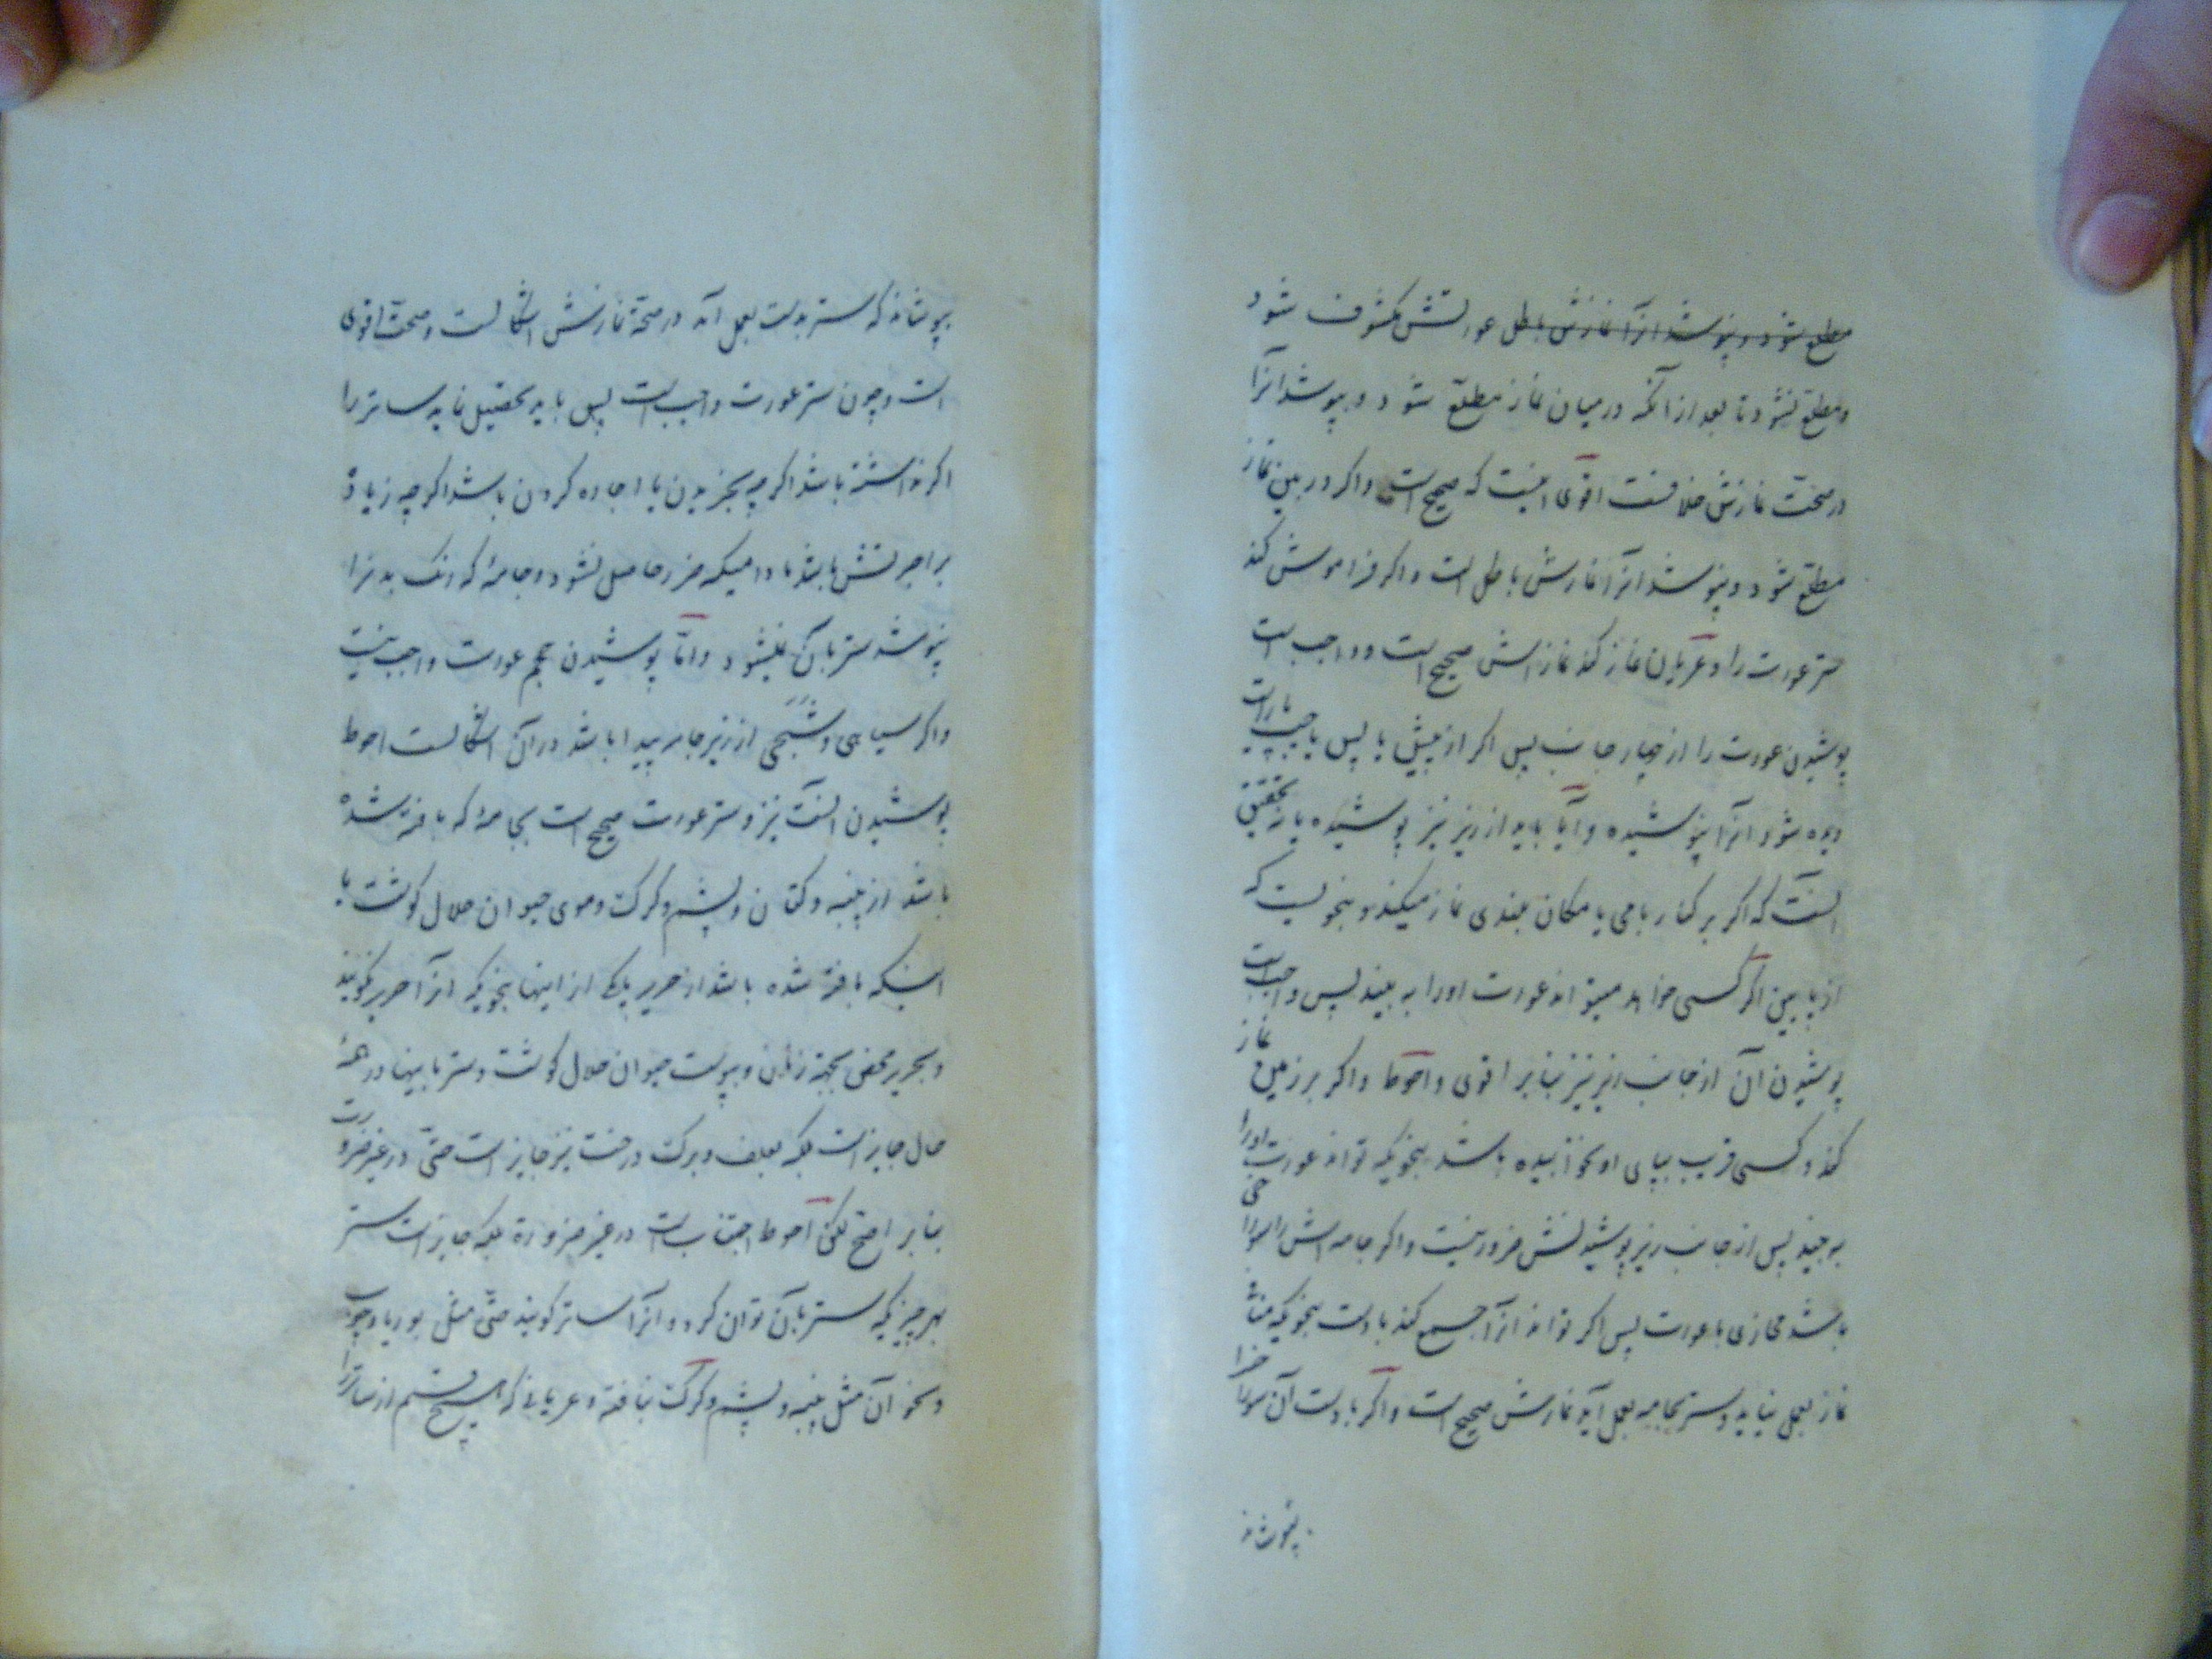 مطلع شود و نپوشد انرا نمازش باطل عورتش مکشوف شود
و مطلع نشود تا بعد از آنکه در میان نماز مطلع شود و بپوشد انرا
در صحت نمازش خلافست اقوی اینست که صحیح است و اکر در بین نماز
مطلع شود و نپوشد انرا نمازش باطل است و اکر فراموش کند
ستر عورت را و عریان نماز کند نمازش صحیح است و واجب است
پوشیدن عورت را از چهار جانب پس اکر از پیش یا پس یا چپ یا راست
دیده شود انرا پوشیده و آیا باید از زیر نیز پوشیده یا نه تحقیق
آنست که اکر بر کنار بامی یا مکان بلندی نماز میکند و بنحویست که
از پایین اکر کسی خواهد میتواند عورت او را به بیند پس واجب است
پوشیدن آن از جانب زیر نیز بنابر اقوی و احوط و اکر بر زمین نماز
کند و کسی قریب بپای او خوابیده باشد بنحویکه تواند عورت اورا
به بیند پس از جانب زیر پوشیدنش ضرور نیست و اکر جامه اش را سوراخی
باشد محاذی با عورت پس اکر تواند انرا جمع کند با دست بنحویکه
نماز بعمل نیاید و ستر بجامه بعمل آید نمازش صحیح است و اکر با دست آن سوراخرا
بپوشاند
بپوشاند که ستر بدست بعمل آید در صحة نمازش اشکالست و صحت اقوی
است و چون ستر عورت واجب است پس باید تحصیل نماید ساتر را
اکر نداشته باشد اکر چه بخریدن یا اجاره کردن باشد اکر چه زیاده
بر اجرتش باشد مادامیکه ضرر حاصل نشود و جامهٔ که رنک بدنرا
نپوشد ستر بآن نمیشود و امّا پوشیدن حجم عورت واجب نیست
و اکر سیاهی و شبحی از زیر جامه پیدا باشد در آن اشکالست احوط
پوشیدن آنست نیز و ستر عورت صحیح است بجامهٔ که بافته شده
باشد از پنبه و کتان و پشم و کرک و موی حیوان حلال کوشت یا
اینکه بافته شده باشد از حریر و یکی از اینها بنحویکه انرا حریر نکویند
و بحریر محض بجهة زنان و بپوست حیوان حلال کوشت و ستر باینها در همهٔ
حال جایز است بلکه بعلف و برک درخت نیز جایز است حتّی در غیر ضرورت
بنابر اصح لکن احوط اجتناب است در غیر ضرورة بلکه جایز است ستر
بهر چیزیکه ستر بآن توان کرد و انرا ساتر کویند حتّی مثل بوریا و چوب
و نحو آن مثل پنبه و پشم و کرک نبافته و عریانی که هیچ قسم از ساتر را